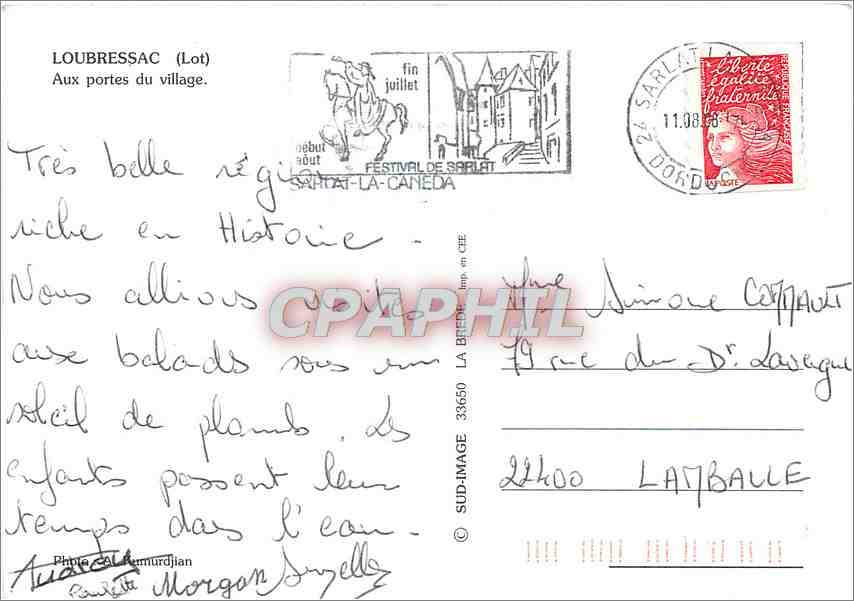 LOUBRESSAC (Lot)
Aux portes du village.
fin
juillet
début
août
FESTIVAL DE SARLAT
SARLAT-LA-CANEDA
24 SARLAT LA
11.08.98
DORDOGNE
liberté
égalité
fraternité
RÉPUBLIQUE FRANÇAISE
LA POSTE
Très belle région
riche en Histoire -
Nous allions visites
aux balads sous un
soleil de plomb. Les
enfants passent leur
temps dans l'eau -
Photo : A. Kumurdjian
Audrey
Paulette Morgan
© SUD-IMAGE 33650 LA BREDE Imp. en CEE
CPAPHIL
Mme Simone COMMAULT
79 rue du Dr. Lavergne
22400 LAMBALLE